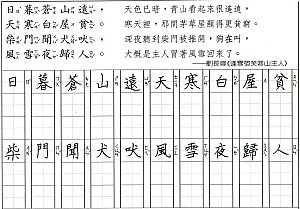 日暮蒼山遠，天色已晚，青山看起來很遙遠，
天寒白屋貧。寒天裡，那間茅草屋顯得更貧窮。
柴門聞犬吠，深夜聽到柴門被推開，狗在叫，
風雪夜歸人。大概是主人冒著風雪回來了。
——劉長卿《逢雪宿芙蓉山主人》
日暮蒼山遠天寒白屋貧
柴門聞犬吠風雪夜歸人